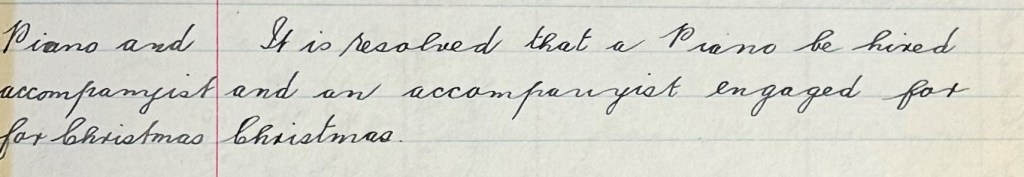 Piano and It is resolved that a Piano be hired
accompanyist and an accompanyist engaged for
for Christmas Christmas.